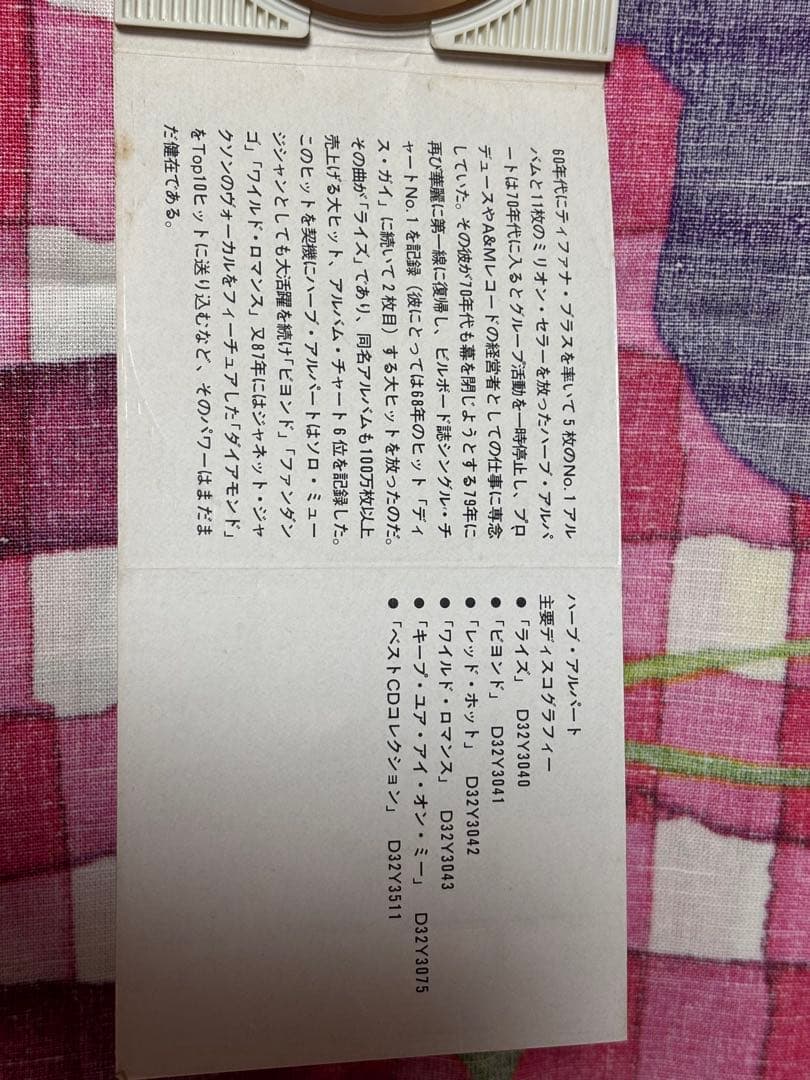 60年代にティファナ・ブラスを率いて5枚のNo.1アル
バムと11枚のミリオン・セラーを放ったハーブ・アルパ
ートは70年代に入るとグループ活動を一時停止し、プロ
デュースやA&Mレコードの経営者としての仕事に専念
していた。その彼が70年代も幕を閉じようとする79年に
再び華麗に第一線に復帰し、ビルボード誌シングル・チ
ャートNo.1を記録（彼にとっては68年のヒット「ディ
ス・ガイ」に続いて2枚目）する大ヒットを放ったのだ。
その曲が「ライズ」であり、同名アルバムも100万枚以上
売上げる大ヒット、アルバム・チャート6位を記録した。
このヒットを契機にハーブ・アルパートはソロ・ミュー
ジシャンとしても大活躍を続け「ビヨンド」「ファンダン
ゴ」「ワイルド・ロマンス」又87年にはジャネット・ジャ
クソンのヴォーカルをフィーチュアした「ダイアモンド」
をTop10ヒットに送り込むなど、そのパワーはまだま
だ健在である。
ハーブ・アルパート
主要ディスコグラフィー
●「ライズ」 D32Y3040
●「ビヨンド」 D32Y3041
●「レッド・ホット」 D32Y3042
●「ワイルド・ロマンス」 D32Y3043
●「キープ・ユア・アイ・オン・ミー」 D32Y3075
●「ベストCDコレクション」 D32Y3511